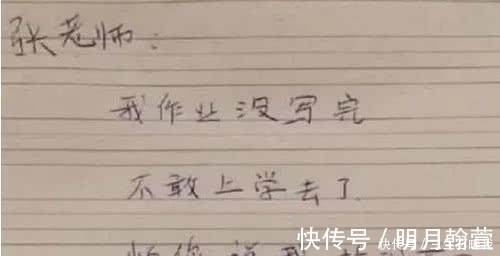 张老师：
我作业没写完
不敢上学去了
怕你说我
快传号／明月翰萱